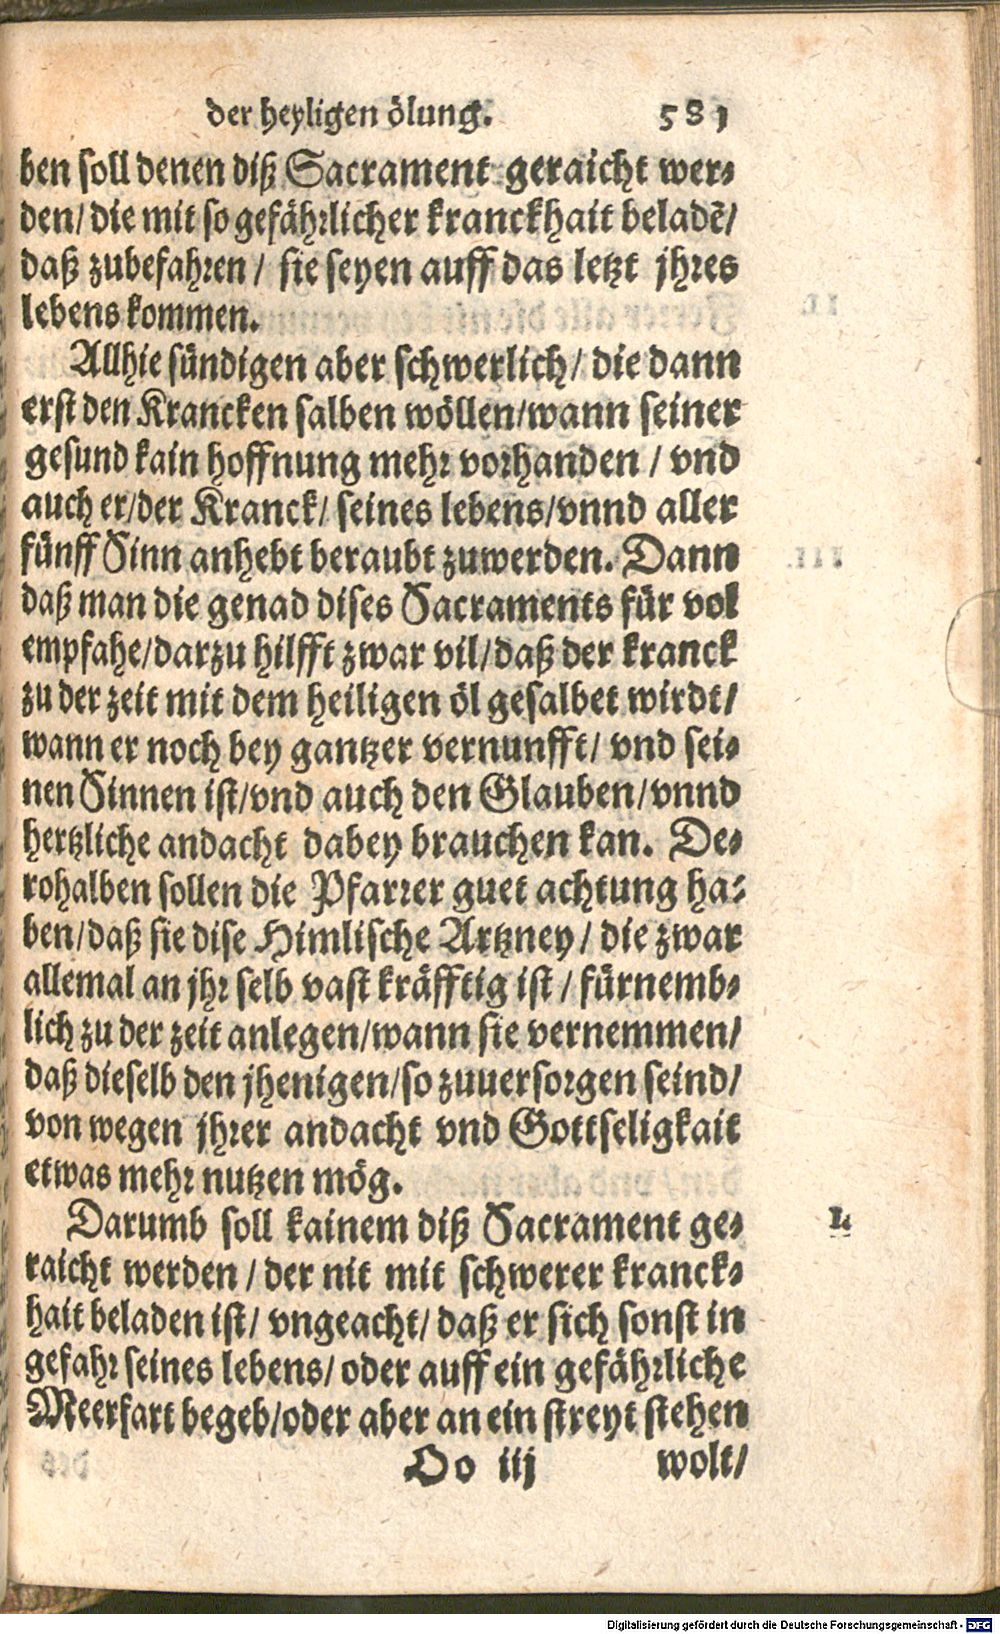 der heyligen ölung. 581
ben soll denen diß Sacrament geraicht wer-
den/ die mit so gefährlicher kranckhait beladẽ/
daß zubefahren / sie seyen auff das letzt jhres
lebens kommen.
Allhie sündigen aber schwerlich/ die dann
erst den Krancken salben wöllen/wann seiner
gesund kain hoffnung mehr vorhanden / vnd
auch er/der Kranck/ seines lebens/vnnd aller
fünff Sinn anhebt beraubt zuwerden. Dann
daß man die genad dises Sacraments für vol
empfahe/darzu hilfft zwar vil/daß der kranck
zu der zeit mit dem heiligen öl gesalbet wirdt/
wann er noch bey gantzer vernunfft/ vnd sei-
nen Sinnen ist/vnd auch den Glauben/vnnd
hertzliche andacht dabey brauchen kan. De-
rohalben sollen die Pfarrer guet achtung ha-
ben/daß sie dise Himlische Artzney / die zwar
allemal an jhr selb vast kräfftig ist / fürnemb-
lich zu der zeit anlegen/wann sie vernemmen/
daß dieselb den jhenigen/so zuuersorgen seind/
von wegen jhrer andacht vnd Gottseligkait
etwas mehr nutzen mög.
Darumb soll kainem diß Sacrament ge- I.
raicht werden / der nit mit schwerer kranck-
hait beladen ist/ vngeacht/ daß er sich sonst in
gefahr seines lebens/ oder auff ein gefährliche
Meerfart begeb/oder aber an ein streyt stehen
Oo iij wolt/
Digitalisierung gefördert durch die Deutsche Forschungsgemeinschaft - DFG